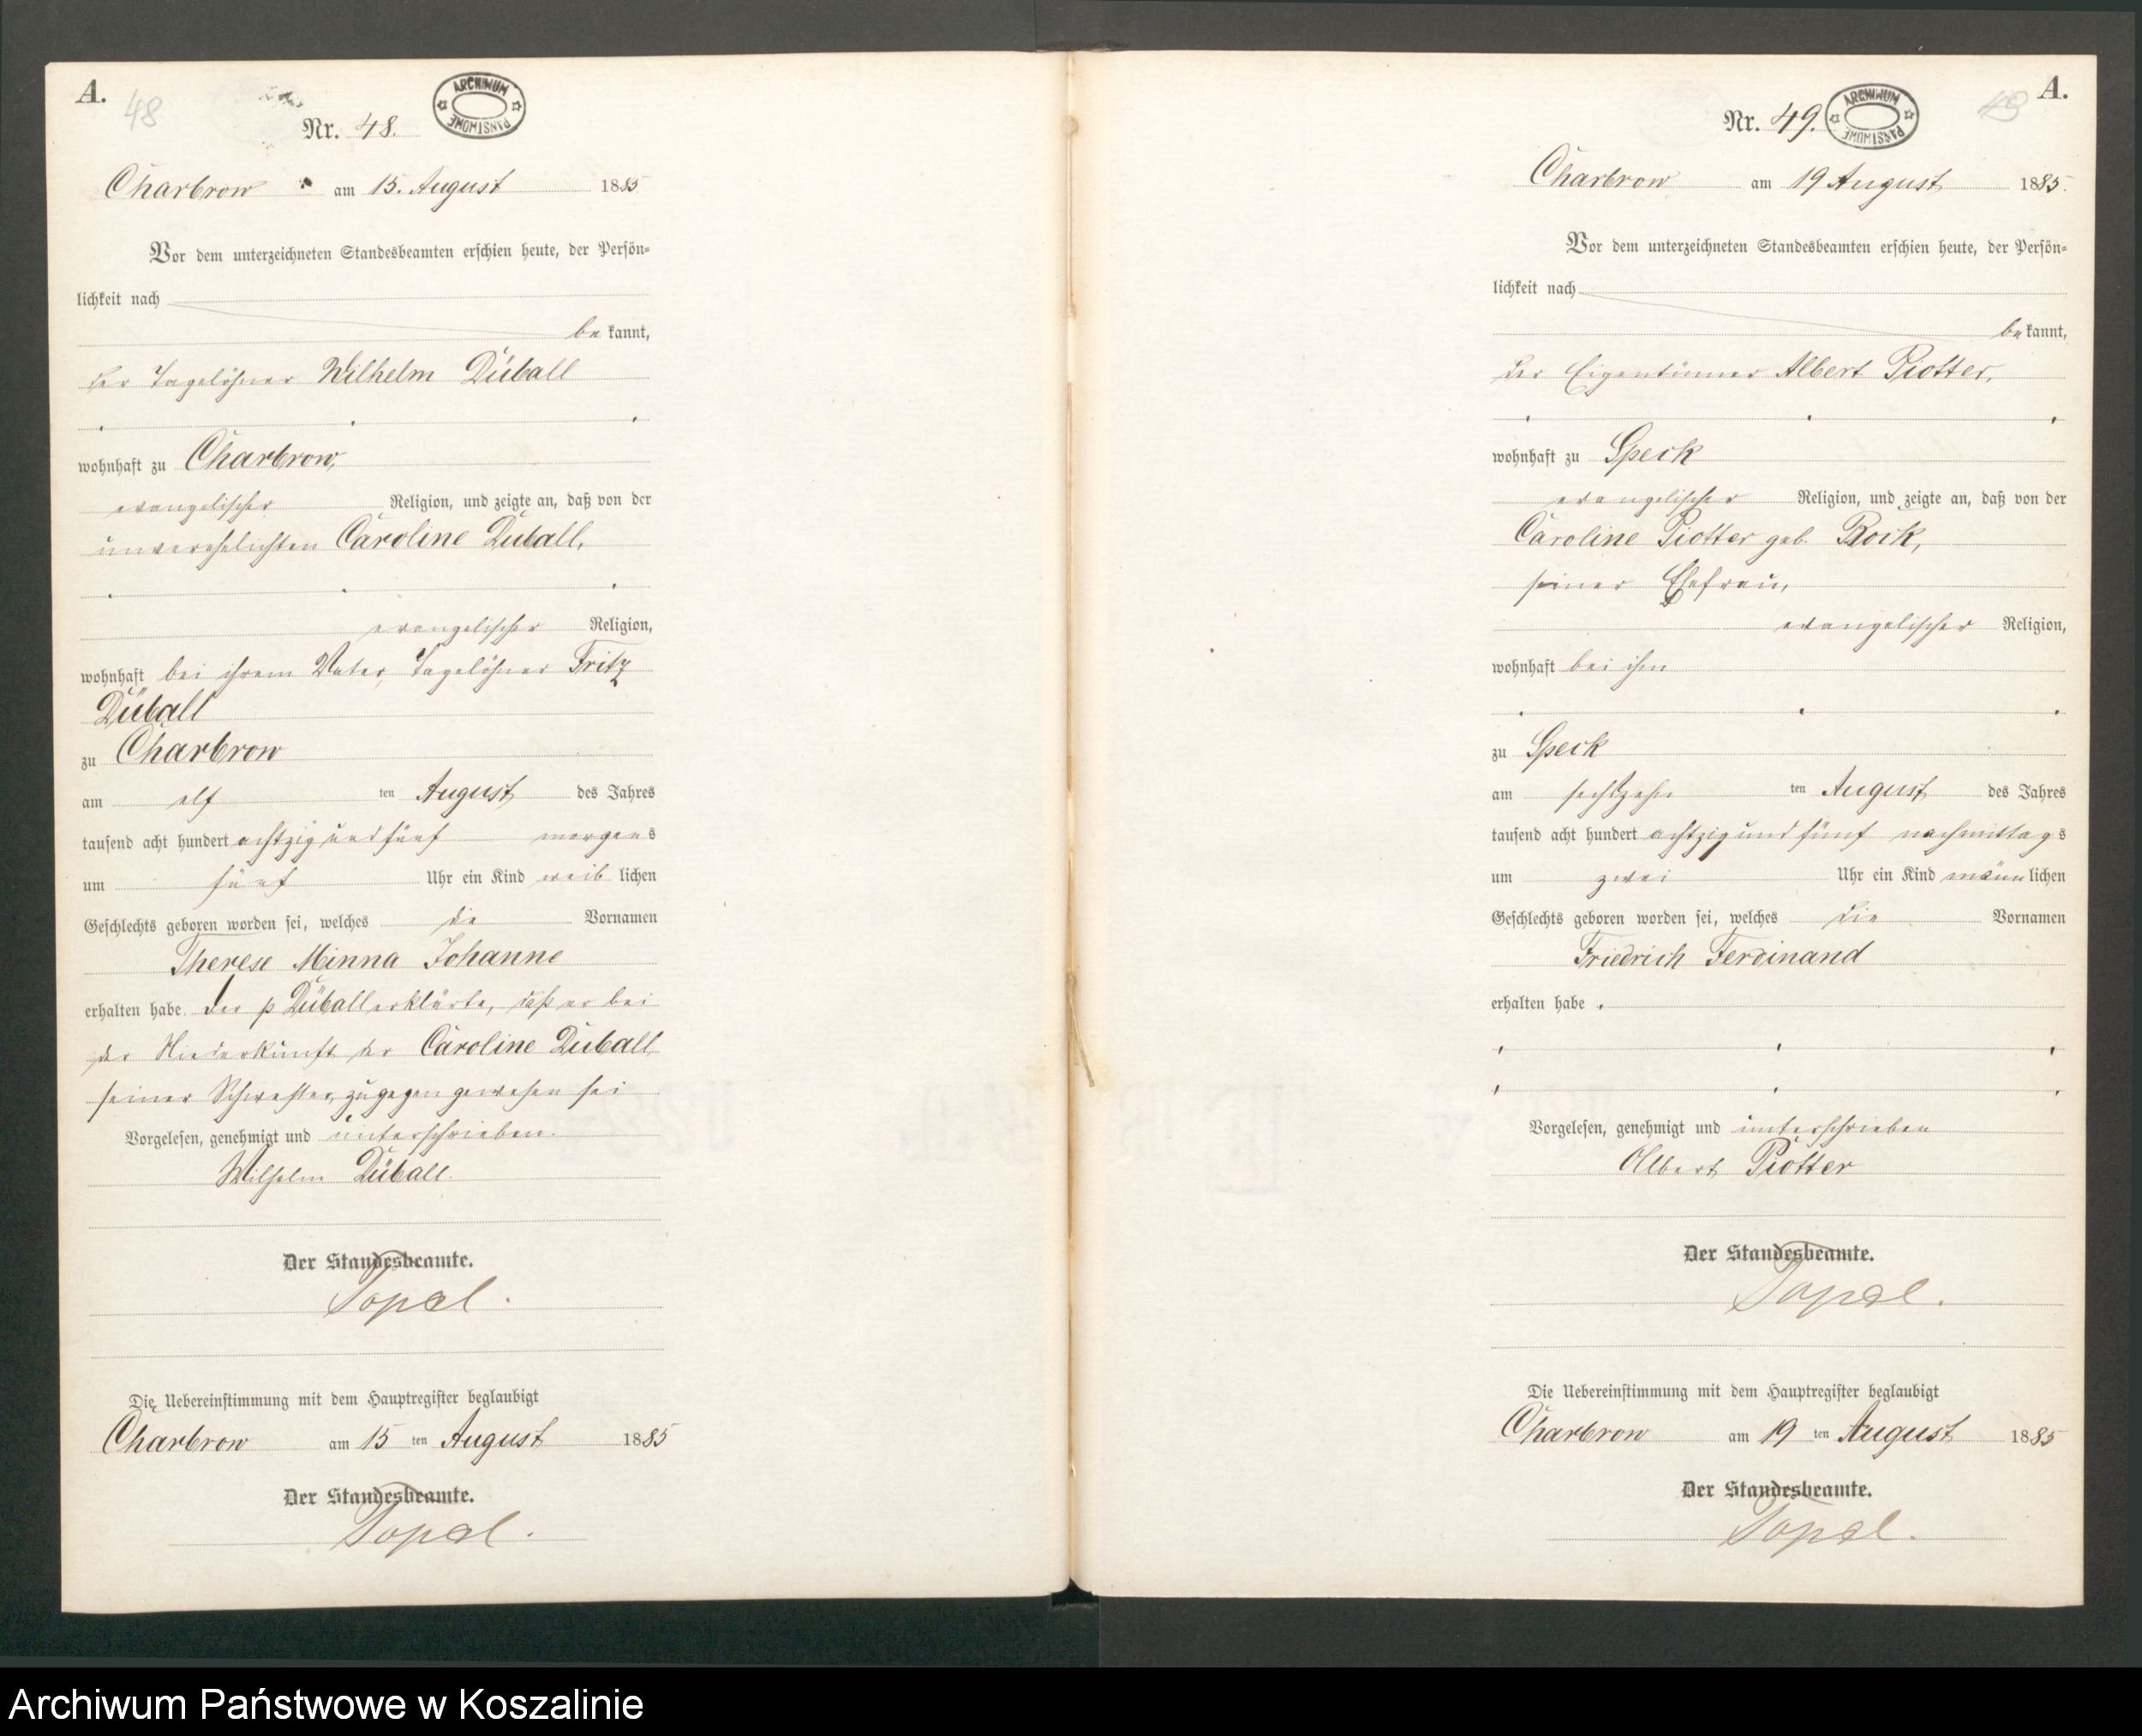 A.
48
Nr. 48.
ARCHIWUM PAŃSTWOWE
Charbrow am 15. August 1885
Vor dem unterzeichneten Standesbeamten erschien heute, der Persön-
lichkeit nach
be kannt,
der Tagelöhner Wilhelm Düball
wohnhaft zu Charbrow,
evangelischer Religion, und zeigte an, daß von der
unverehelichten Caroline Düball,
evangelischer Religion,
wohnhaft bei ihrem Vater, Tagelöhner Fritz
Düball
zu Charbrow
am elf ten August des Jahres
tausend acht hundert achtzig und fünf morgens
um fünf Uhr ein Kind weib lichen
Geschlechts geboren worden sei, welches die Vornamen
Therese Minna Johanne
erhalten habe. Der p Düball erklärte, daß er bei
der Niederkunft der Caroline Düball
seiner Schwester, zugegen gewesen sei
Vorgelesen, genehmigt und unterschrieben.
Wilhelm Düball.
Der Standesbeamte.
Topel.
Die Uebereinstimmung mit dem Hauptregister beglaubigt
Charbrow am 15 ten August 1885
Der Standesbeamte.
Topel.
A.
49
Nr. 49.
ARCHIWUM PAŃSTWOWE
Charbrow am 19 August 1885.
Vor dem unterzeichneten Standesbeamten erschien heute, der Persön-
lichkeit nach
be kannt,
der Eigentümer Albert Piotter,
wohnhaft zu Speck
evangelischer Religion, und zeigte an, daß von der
Caroline Piotter geb. Rock,
seiner Ehefrau,
evangelischer Religion,
wohnhaft bei ihm
zu Speck
am sechszehn ten August des Jahres
tausend acht hundert achtzig und fünf nachmittags
um zwei Uhr ein Kind männ lichen
Geschlechts geboren worden sei, welches die Vornamen
Friedrich Ferdinand
erhalten habe.
Vorgelesen, genehmigt und unterschrieben
Albert Piotter
Der Standesbeamte.
Topel.
Die Uebereinstimmung mit dem Hauptregister beglaubigt
Charbrow am 19 ten August 1885
Der Standesbeamte.
Topel.
Archiwum Państwowe w Koszalinie